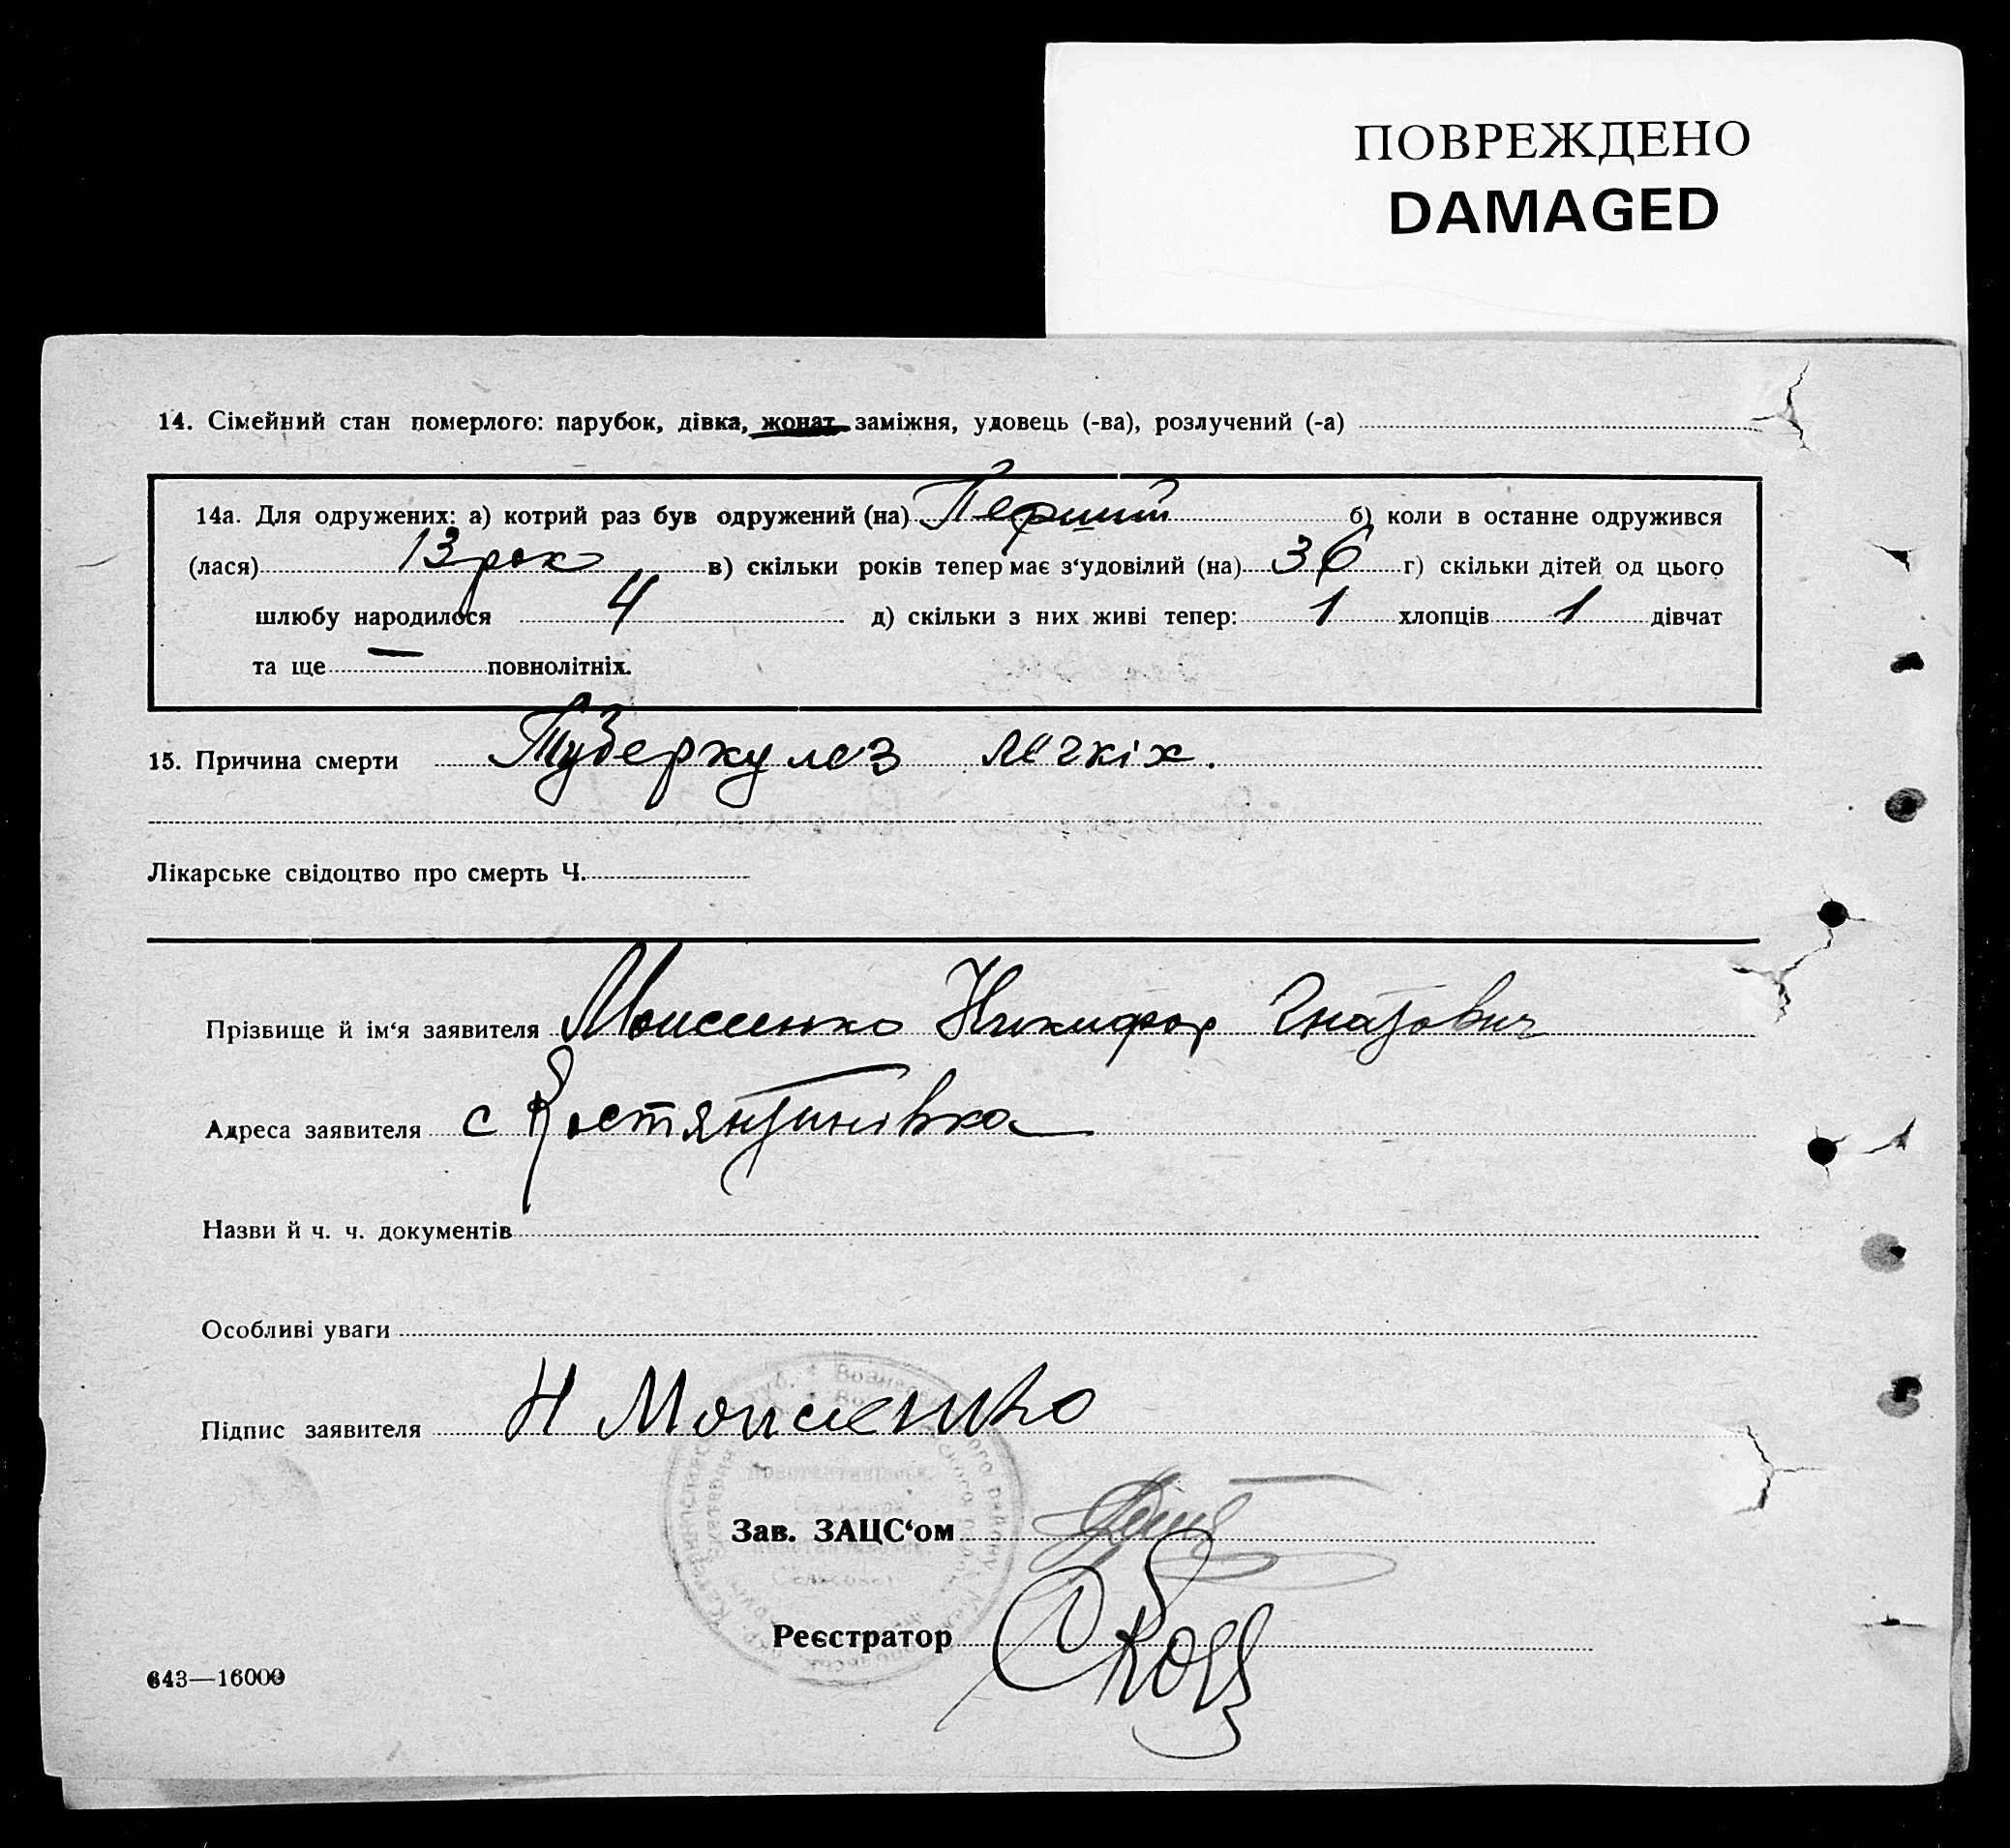 ПОВРЕЖДЕНО
DAMAGED
14. Сімейний стан померлого: парубок, дівка, жонат, заміжня, удовець (-ва), розлучений (-а)
14а. Для одружених: а) котрий раз був одружений (на) Перший б) коли в останне одружився
(лася) 13 рок в) скільки років тепер має з‘удовілий (на) 36 г) скільки дітей од цього
шлюбу народилося 4 д) скільки з них живі тепер: 1 хлопців 1 дівчат
та ще — повнолітніх.
15. Причина смерти Туберкулоз легкіх.
Лікарське свідоцтво про смерть Ч.
Прізвище й ім‘я заявителя Моисеенко Никифор Гнатович
Адреса заявителя с Костянтинівка
Назви й ч. ч. документів
Особливі уваги
Підпис заявителя Н Моисеенко
Зав. ЗАЦС‘ом
Реєстратор
643—16000